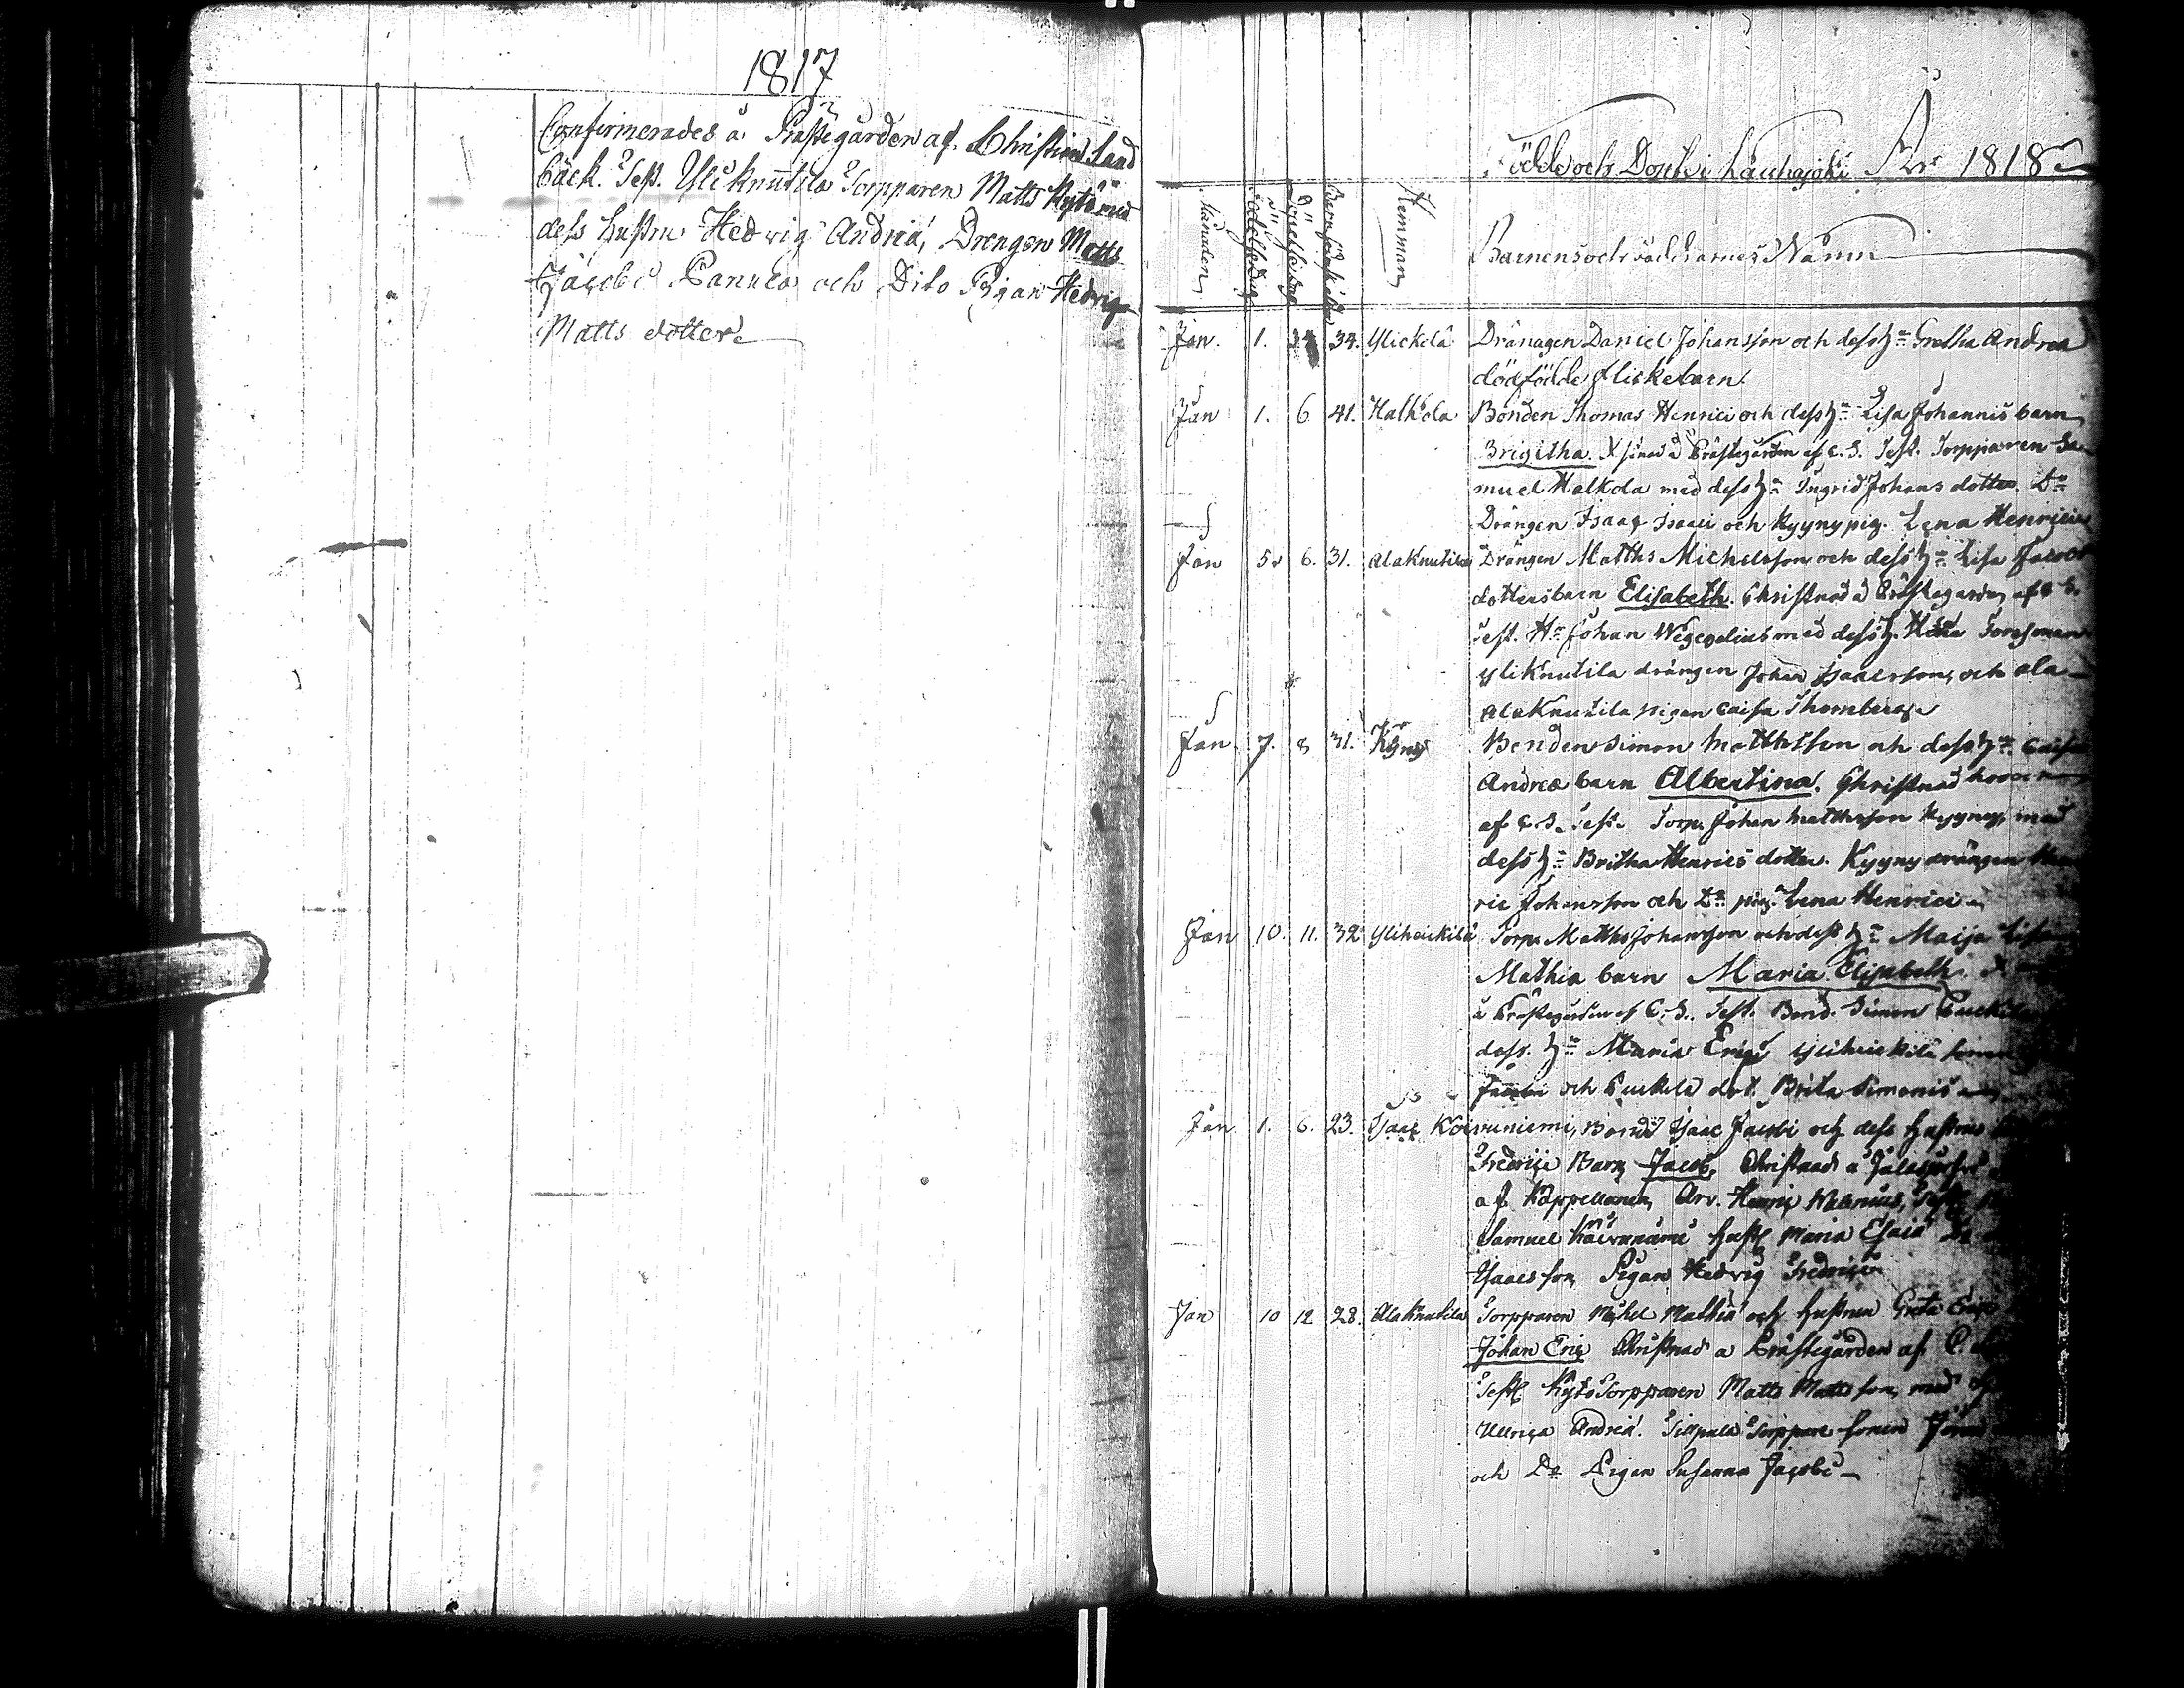 1817
Confirmerades å Prästegården af Christian Sand
bäck. Test. Yliknutila Torpparen Matts Kytö med
dess hustru Hedvig Andreä, Drengen Matts
Jacobi Pannea och Dito Pigan Hedvig
Matts dotter
Födde och Döpte i Lauhajoki År 1818
Månaden
Födelsedag
Döpelsedag
Barnsföderskans ålder
Hemman
Barnens och Föräldrarnes Namn
Jan. 1. 34. Ylickilä Drängen Daniel Johansson och dess h:u Gretha Andreä
dödfödde flickebarn.
Jan 1. 6 41. Halkola Bonden Thomas Henrici och dess h:u Lisa Johannis barn
Brigitha. Xstnad å Prästegården af C. S. Test. Torpparen Sa-
muel Halkola med dess h:u Ingrid Johans dotter. D:o
Drängen Isaac Isaaci och Kyyny pig. Lena Henrici
Jan 5. 6. 31. Alaknutila Drängen Matths Michelsson och dess h:u Lisa Jacobs
dotters barn Elisabeth. Christnad å Prästegården af C. S.
Test. H:r Johan Wegelius med dess h. Forssman
Yliknutila drängen Johan Isaacsson, och ala
Alaknutila pigan Caisa Thornberg
Jan. 7. 8 31. Kyyny Bonden Simon Matthsson och dess h:u Caisa
Andreä barn Albertina. Christnad hemma
af C. S. Test. Torp. Johan Matthsson Kyyny, med
dess h:u Britha Henrics dotter. Kyyny drängen Hen
ric Johansson och D:o pig. Lena Henrici
Jan 10. 11. 32 Yliheickilä Torp. Matths Johansson och dess h:u Maija Lisa
Mathiä barn Maria Elisabeth. X
å Prästegården af C. S. Test. Bond. Simon Puckila
dess. h:u Maria Erici Yliheickilä sonen
Jacobi och Puckila dot. Brita Simonis
Jan 1. 6. 23. Isaac Koivuniemi, Bond. Isaac Jacobi och dess hustrus
Fredrici Barn Jacob, Christnad å Jalasjärfvi
af Kappellanen Arv. Henric Test.
Samuel Koivuniemi hust. Maria Esaiä
Isaacsson, Pigan Hedvig Fredrici
Jan 10 12 28. Alaknutila Torpparen Michel Mathiä och hustrun Greta Caisa
Johan Eric Christnad å Prästegården af C.
Test. Kytö Torpparen Matts Mattsson, med
Ullrica Andreä. Torppare sonen
och D:o Pigan Susanna Jacobi